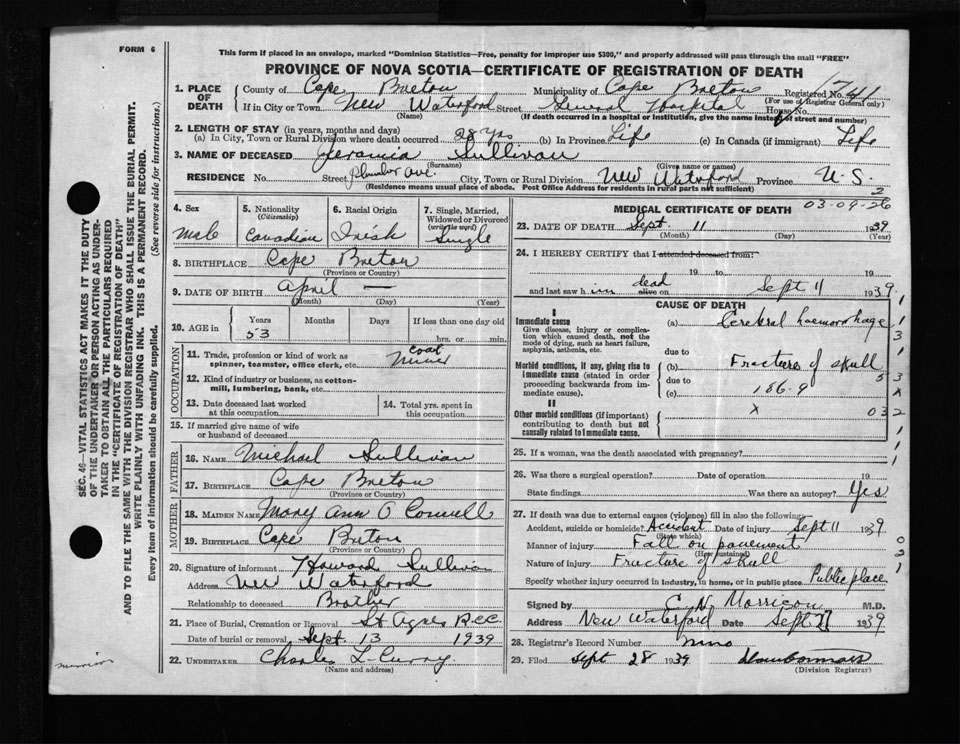 FORM 6
This form if placed in an envelope, marked "Dominion Statistics—Free, penalty for improper use $300," and properly addressed will pass through the mail "FREE"
PROVINCE OF NOVA SCOTIA—CERTIFICATE OF REGISTRATION OF DEATH
1. PLACE OF DEATH County of Cape Breton Municipality of Cape Breton Registered No.
(For use of Registrar General only)
If in City or Town New Waterford Street General Hospital House No.
(Name) (If death occurred in a hospital or institution, give the name instead of street and number)
2. LENGTH OF STAY (in years, months and days)
(a) In City, Town or Rural Division where death occurred 28 yrs (b) In Province Life (c) In Canada (if immigrant) Life
3. NAME OF DECEASED Sullivan
(Surname) (Given name or names)
RESIDENCE No. Street Plumber Ave. City, Town or Rural Division New Waterford Province N.S.
(Residence means usual place of abode. Post Office Address for residents in rural parts not sufficient)
4. Sex Male
5. Nationality (Citizenship) Canadian
6. Racial Origin Irish
7. Single, Married, Widowed or Divorced (write the word) Single
8. BIRTHPLACE Cape Breton
(Province or Country)
9. DATE OF BIRTH April —
(Month) (Day) (Year)
10. AGE in Years Months Days If less than one day old
53 hrs. or min.
OCCUPATION
11. Trade, profession or kind of work as spinner, teamster, office clerk, etc. Coal Miner
12. Kind of industry or business, as cotton-mill, lumbering, bank, etc.
13. Date deceased last worked at this occupation
14. Total yrs. spent in this occupation
15. If married give name of wife or husband of deceased
FATHER
16. Name Michael Sullivan
17. Birthplace Cape Breton
(Province or Country)
MOTHER
18. Maiden Name Mary Ann O Connell
19. Birthplace Cape Breton
(Province or Country)
20. Signature of informant Howard Sullivan
Address New Waterford
Relationship to deceased Brother
21. Place of Burial, Cremation or Removal St Agnes R.C.C.
Date of burial or removal Sept. 13 1939
22. UNDERTAKER Charles L. Curry
(Name and address)
MEDICAL CERTIFICATE OF DEATH
03-09-26
23. DATE OF DEATH Sept. 11 1939
(Month) (Day) (Year)
24. I HEREBY CERTIFY that I attended deceased from:
19 to 19
and last saw h im dead alive on Sept 11 1939.
CAUSE OF DEATH
I
Immediate cause
Give disease, injury or complication which caused death, not the mode of dying, such as heart failure, asphyxia, asthenia, etc.
(a) Cerebral haemorrhage
due to
Morbid conditions, if any, giving rise to immediate cause (stated in order proceeding backwards from immediate cause).
(b) Fracture of skull
due to
(c) 186-9
II
Other morbid conditions (if important) contributing to death but not causally related to immediate cause.
x
25. If a woman, was the death associated with pregnancy?
26. Was there a surgical operation? Date of operation 19
State findings Was there an autopsy? Yes
27. If death was due to external causes (violence) fill in also the following:
Accident, suicide or homicide? Accident Date of injury Sept 11 1939
(State which)
Manner of injury Fall on pavement
(How sustained)
Nature of injury Fracture of skull
Specify whether injury occurred in industry, in home, or in public place Public place
Signed by Morrison M.D.
Address New Waterford Date Sept 1939
28. Registrar's Record Number
29. Filed Sept 28 1939
(Division Registrar)
SEC. 46—VITAL STATISTICS ACT MAKES IT THE DUTY
OF THE UNDERTAKER OR PERSON ACTING AS UNDER-
TAKER TO OBTAIN ALL THE PARTICULARS REQUIRED
IN THE "CERTIFICATE OF REGISTRATION OF DEATH"
AND TO FILE THE SAME WITH THE DIVISION REGISTRAR WHO SHALL ISSUE THE BURIAL PERMIT.
WRITE PLAINLY WITH UNFADING INK. THIS IS A PERMANENT RECORD.
Every item of information should be carefully supplied. (See reverse side for instructions.)